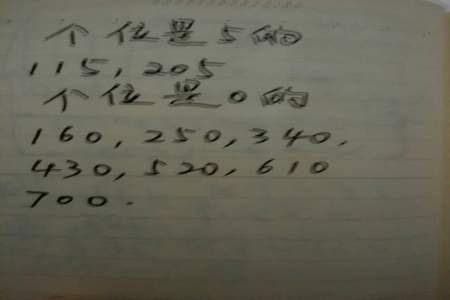 个位是5的
115,205
个位是0的
160,250,340,
430,520,610
700.